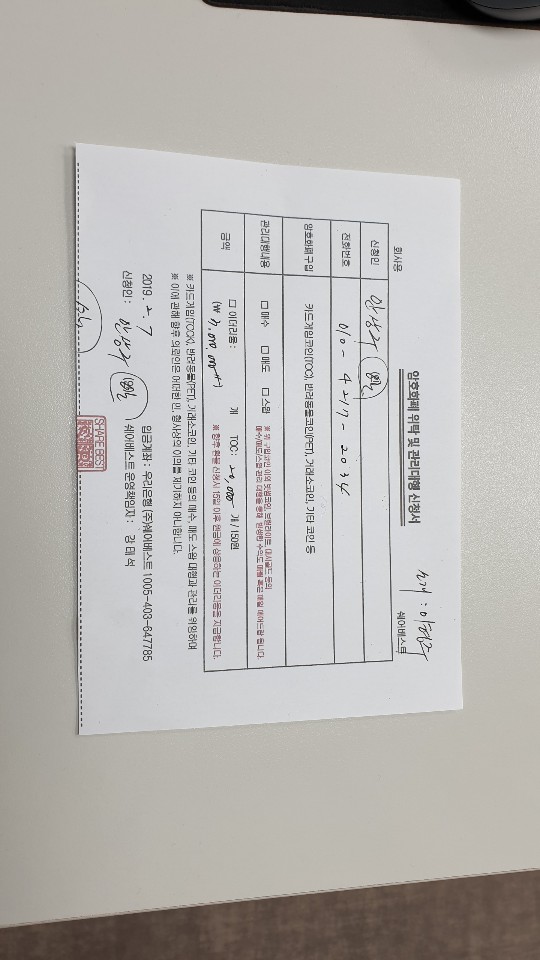 소개 : 이현주
암호화폐 위탁 및 관리대행 신청서
회사용
쉐어베스트
신청인 안상구
전화번호 010 - 4217 - 2034
암호화폐구입 카드게임코인(TOC), 반려동물코인(PET), 거래소코인, 기타 코인 등
관리대행내용 □ 매수 □ 매도 □ 스왑 ※ 위 구입코인 이외 빗썸코인, 브릴라이트, 대시골드 등의
매수/매도/스왑 관리 대행을 통해 발생한 수익도 매월 혹은 매일 에어드랍 됩니다.
금액 □ 이더리움 : 개 TOC : 20,000 개 / 150원
(₩ 3,000,000 ) ※ 향후 환불 신청시 15일 이후 원금에 상응하는 이더리움을 지급합니다.
※ 카드게임(TOCK), 반려동물(PET), 거래소코인, 기타 코인 등의 매수, 매도 스왑 대행과 관리를 위임하며
※ 이에 관해 향후 의뢰인은 어떠한 민, 형사상의 이의를 제기하지 아니합니다.
2019 . 2. 7 입금계좌 : 우리은행 (주)쉐어베스트 1005-403-647785
신청인 : 안상구 쉐어베스트 운영책임자 : 강태석
SHARE BEST